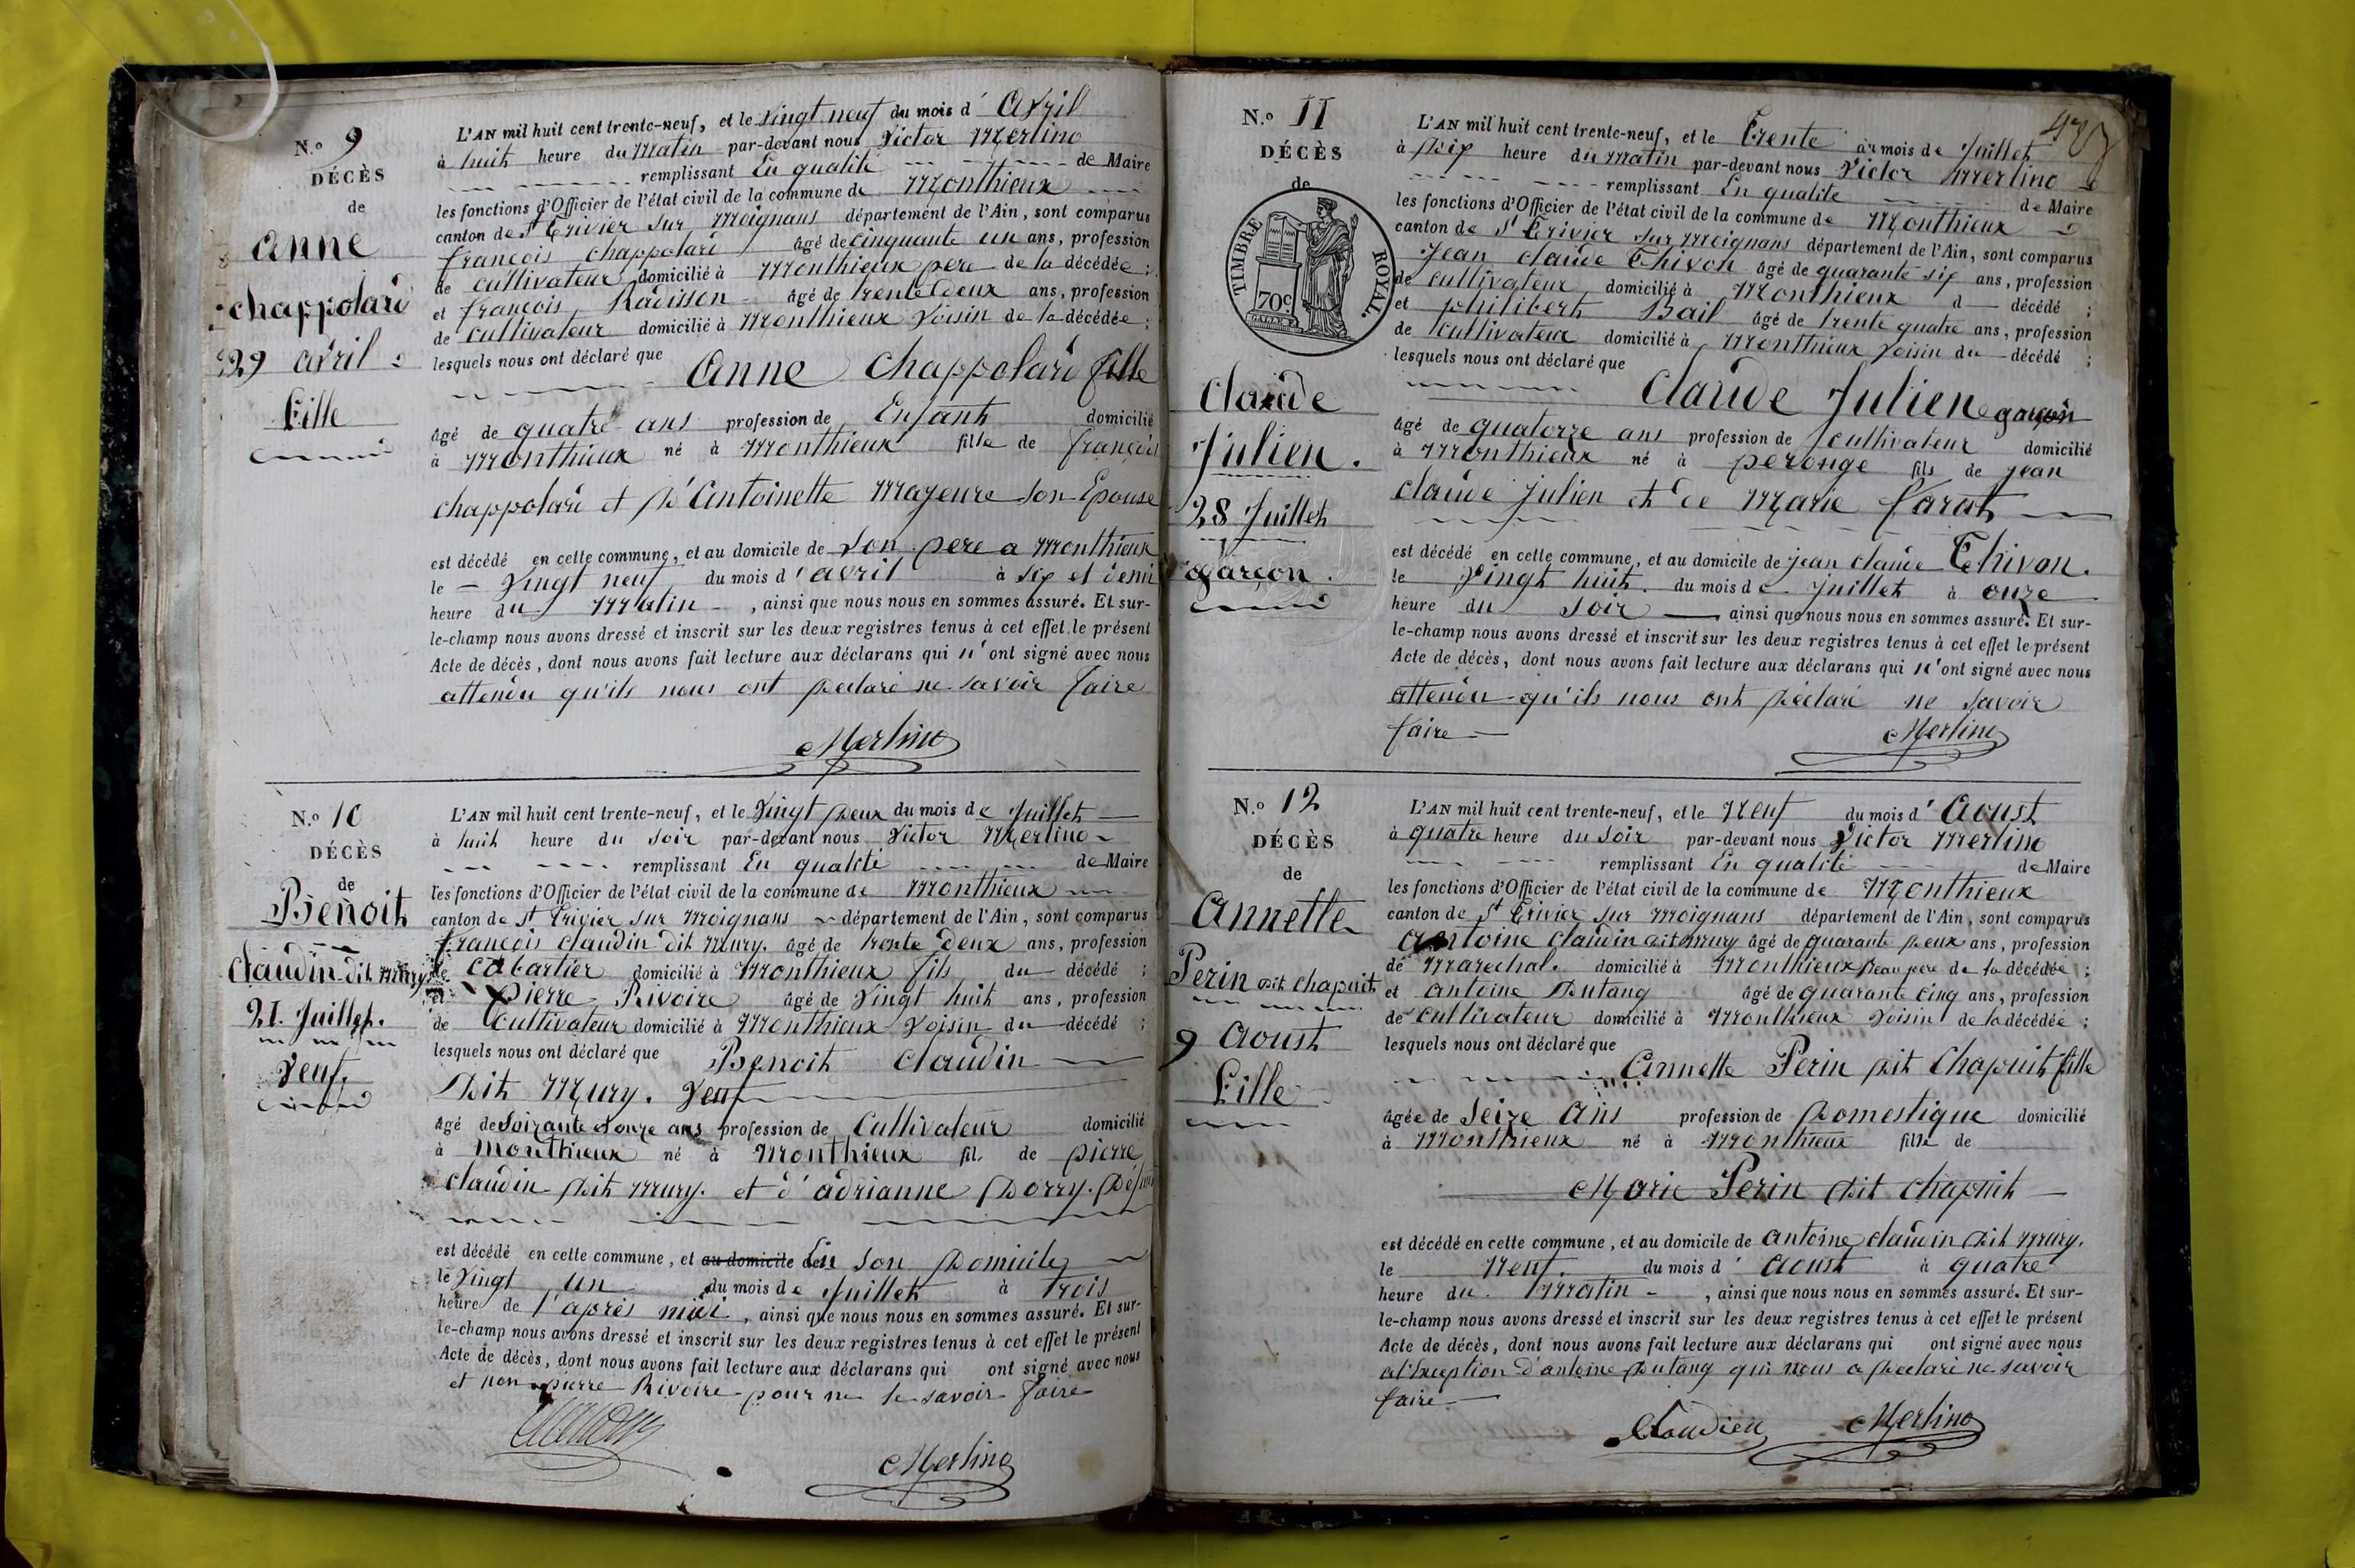 N.o 9
DÉCÈS
de
Anne
chappolard
29 avril
Fille
L'AN mil huit cent trente-neuf, et le Vingt neuf du mois d' Avril
à huit heure du Matin par-devant nous Victor Merlino
remplissant En qualité de Maire
les fonctions d'Officier de l'état civil de la commune de Monthieux
canton de St Trivier sur Moignans département de l'Ain, sont comparus
françois chappolard âgé de cinquante un ans, profession
de cultivateur domicilié à Monthieux pere de la décédée ;
et françois Radisson âgé de trente deux ans, profession
de cultivateur domicilié à Monthieux Voisin de la décédée ;
lesquels nous ont déclaré que Anne Chappolard fille
âgé de quatre ans profession de Enfant domicilié
à Monthieux né à Monthieux fille de françois
chappolard et D'Antoinette Mazeure son Epouse
est décédé en cette commune, et au domicile de Son pere a Monthieux
le Vingt neuf du mois d' avril à six et demi
heure du Matin, ainsi que nous nous en sommes assuré. Et sur-
le-champ nous avons dressé et inscrit sur les deux registres tenus à cet effet le présent
Acte de décès, dont nous avons fait lecture aux déclarans qui n'ont signé avec nous
attendu qu'ils nous ont Declaré ne savoir faire
Merlino
N.o 10
DÉCÈS
de
Benoit
Claudin dit Mury
21. Juillet.
Veuf.
L'AN mil huit cent trente-neuf, et le Vingt Deux du mois de Juillet
à huit heure du soir par-devant nous Victor Merlino
remplissant En qualité de Maire
les fonctions d'Officier de l'état civil de la commune de Monthieux
canton de St Trivier sur Moignans département de l'Ain, sont comparus
françois claudin dit Mury. âgé de trente deux ans, profession
de cabartier domicilié à Monthieux fils du décédé ;
et Pierre Rivoire âgé de Vingt huit ans, profession
de Cultivateur domicilié à Monthieux Voisin du décédé ;
lesquels nous ont déclaré que Benoit claudin
Dit Mury. Veuf
âgé de Soixante et onze ans profession de Cultivateur domicilié
à Monthieux né à Monthieux fils de pierre
claudin Dit Mury. et d'adrianne Dorry. Défunt
est décédé en cette commune, et au domicile de En Son Domicile
le Vingt un du mois de Juillet à Trois
heure de l'après midi, ainsi que nous nous en sommes assuré. Et sur-
le-champ nous avons dressé et inscrit sur les deux registres tenus à cet effet le présent
Acte de décès, dont nous avons fait lecture aux déclarans qui ont signé avec nous
et non pierre Rivoire pour ne le savoir faire
Merlino
N.o 11
DÉCÈS
de
TIMBRE ROYAL.
70c.
Claude
Julien.
28 Juillet
garçon.
L'AN mil huit cent trente-neuf, et le Trente du mois de Juillet
à Dix heure du Matin par-devant nous Victor Merlino
remplissant En qualité de Maire
les fonctions d'Officier de l'état civil de la commune de Monthieux
canton de St Trivier sur Moignans département de l'Ain, sont comparus
Jean claude Thivon âgé de quarante six ans, profession
de cultivateur domicilié à Monthieux d décédé ;
et philibert Bail âgé de trente quatre ans, profession
de Cultivateur domicilié à Monthieux Voisin du décédé ;
lesquels nous ont déclaré que Claude Julien garçon
âgé de quatorze ans profession de Cultivateur domicilié
à Monthieux né à peronge fils de jean
claude julien et de Marie farat
est décédé en cette commune, et au domicile de jean claude Thivon.
le Vingt huit. du mois de Juillet à onze
heure du Soir ainsi que nous nous en sommes assuré. Et sur-
le-champ nous avons dressé et inscrit sur les deux registres tenus à cet effet le présent
Acte de décès, dont nous avons fait lecture aux déclarans qui n'ont signé avec nous
attendu qu'ils nous ont Declaré ne savoir
faire
Merlino
N.o 12
DÉCÈS
de
Annette
Perin dit chapuit
9 Aoust
Fille
L'AN mil huit cent trente-neuf, et le Neuf du mois d' Aoust
à quatre heure du soir par-devant nous Victor Merlino
remplissant En qualité de Maire
les fonctions d'Officier de l'état civil de la commune de Monthieux
canton de St Trivier sur Moignans département de l'Ain, sont comparus
Antoine claudin dit mury âgé de quarante Deux ans, profession
de Marechal. domicilié à Monthieux Beau pere de la décédée ;
et antoine Dutang âgé de quarante cinq ans, profession
de cultivateur domicilié à Monthieux Voisin de la décédée ;
lesquels nous ont déclaré que
Annette Perin Dit Chapuit fille
âgée de Seize Ans profession de Domestique domicilié
à Monthieux né à Monthieux fille de
Marie Perin Dit chapuit
est décédé en cette commune, et au domicile de antoine claudin Dit Mury.
le Neuf. du mois d' Aoust à quatre
heure du Matin, ainsi que nous nous en sommes assuré. Et sur-
le-champ nous avons dressé et inscrit sur les deux registres tenus à cet effet le présent
Acte de décès, dont nous avons fait lecture aux déclarans qui ont signé avec nous
a l'Exception d'antoine Dutang qui nous a Declaré ne savoir
faire
Claudien Merlino